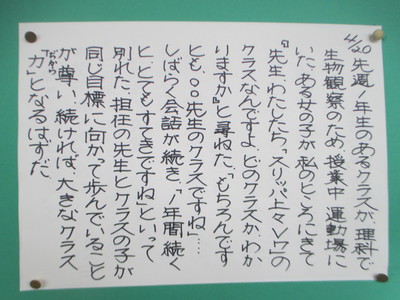 4/20 先週1年生のあるクラスが、理科で
生物観察のため、授業中運動場に
いた。ある女の子が私のところにきて
『先生、わたしたち、"スリッパ上々↗"の
クラスなんですよ。どのクラスかわか
りますか』と尋ねた。「もちろんです
とも、○○先生のクラスですね」…
しばらく会話が続き、「1年間続く
と、とてもすてきですね」といって
別れた。担任の先生とクラスの子が
同じ目標に向かって歩んでいること
が尊い。続ければ、大きなクラス
"だから
力"となるはずだ。